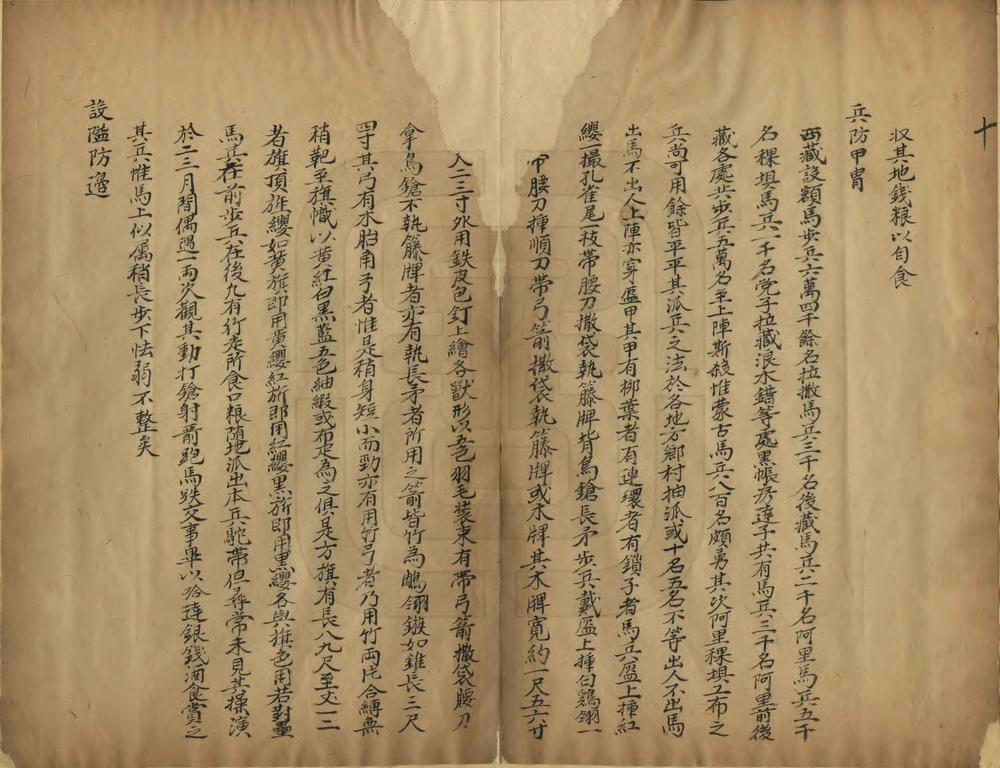 収其地錢粮以自食
兵防甲冑
西藏設額馬步兵六萬四千餘名拉撒馬兵三千名後藏馬兵二千名阿里馬兵五千
名稞垻馬兵一千名党子拉藏浪木錯等處黑帳房達子共有馬兵三千名阿里前後
藏各處共步兵五萬名至上陣斯殺惟蒙古馬兵八百名頗勇其次阿里稞垻工布之
兵尚可用餘皆平平其派兵之法於各地方鄉村抽派或十名五名不等出人不出馬
出馬不出人上陣亦穿盔甲其甲有柳葉者有連環者有鎖子者馬兵盔上挿紅
纓一撮孔雀尾一枝帶腰刀撒袋執籐牌背鳥鎗長矛步兵戴盔上挿白鷄翎一
腰刀挿順刀帶弓箭撒袋執籐牌或木牌其木牌寬約一尺五六寸
二三寸外用鉄皮包釘上繪各獸形以五色羽毛裝束有帶弓箭撒袋腰刀
拿鳥鎗不執籐牌者亦有執長矛者所用之箭皆竹為鵰翎鏃如錐長三尺
四寸其弓有木胎角子者惟是稍身短小而勁亦有用竹弓者乃用竹兩片合縛無
稍靶至旗幟以黃紅白黑藍五色紬緞或布疋為之俱是方旗有長八九尺至丈一二
者旗頂旗纓如黃旗即用黃纓紅旂即用紅纓黑旂即用黑纓各與旗色用若對壘
馬兵在前步兵在後凡有行走所食口粮隨地派出本兵駝帶但尋常未見其操演
於二三月間偶遇一兩次觀其動打鎗射箭跑馬跌交事畢以哈達銀錢酒食賞之
其兵惟馬上似属稍長步下怯弱不整矣
設隘防邊